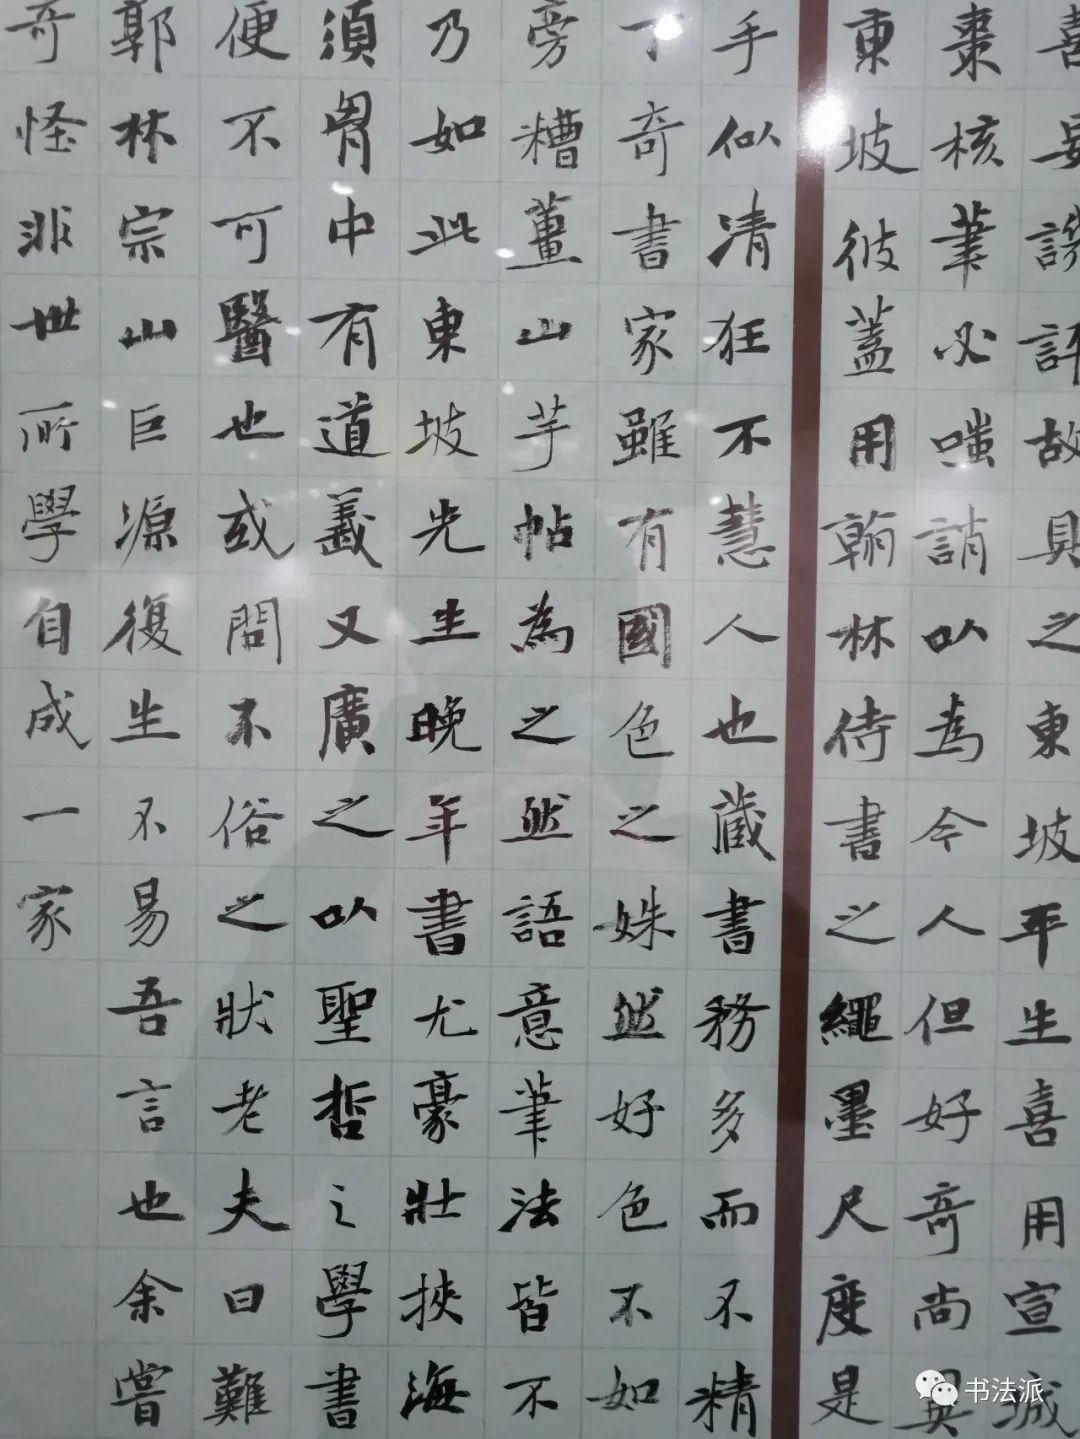 喜妄譏評故具之東坡平生喜用宣城
棗核筆必嗤誚以為今人但好奇尚異
東坡彼蓋用翰林侍書之繩墨尺度是
手似清狂不慧人也藏書務多而不精
丁奇書家雖有國色之姝然好色不如
旁糟薑山芋帖為之然語意筆法皆不
乃如此東坡先生晚年書尤豪壯挾海
須胷中有道義又廣之以聖哲之學書
便不可醫也或問不俗之狀老夫曰難
郭林宗山巨源復生不易吾言也余嘗
奇怪非世所學自成一家
书法派